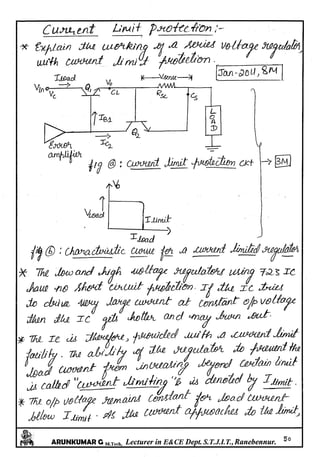 Current Limit protection :-
* Explain the working of a series voltage regulator
with current limit protection.
Jan-2011, 8M
ILoad
Vsense
Vin
Vc
Q1
Vo
CL
RSC
CS
IB1
LOAD
Q2
IC2
Error
amplifier
fig ⓐ : Current limit protection ckt → 3M
Vo
VLoad
Ilimit
ILoad
fig ⓑ : Characteristic curve for a current limited regulator
* The low and high voltage regulators using 723 IC
have no short circuit protection. If the IC tries
to drive very large current at constant o/p voltage
then the IC gets hotter and may burn out.
* The IC is therefore, provided with a current limit
facility. The ability of the regulator to prevent the
load current from increasing beyond certain limit
is called "current limiting" & is denoted by Ilimit.
* The o/p voltage remains constant for load current
bellow Ilimit. As the current approaches to the limit,
ARUNKUMAR G M.Tech, Lecturer in E&CE Dept. S.T.J.I.T., Ranebennur. 50